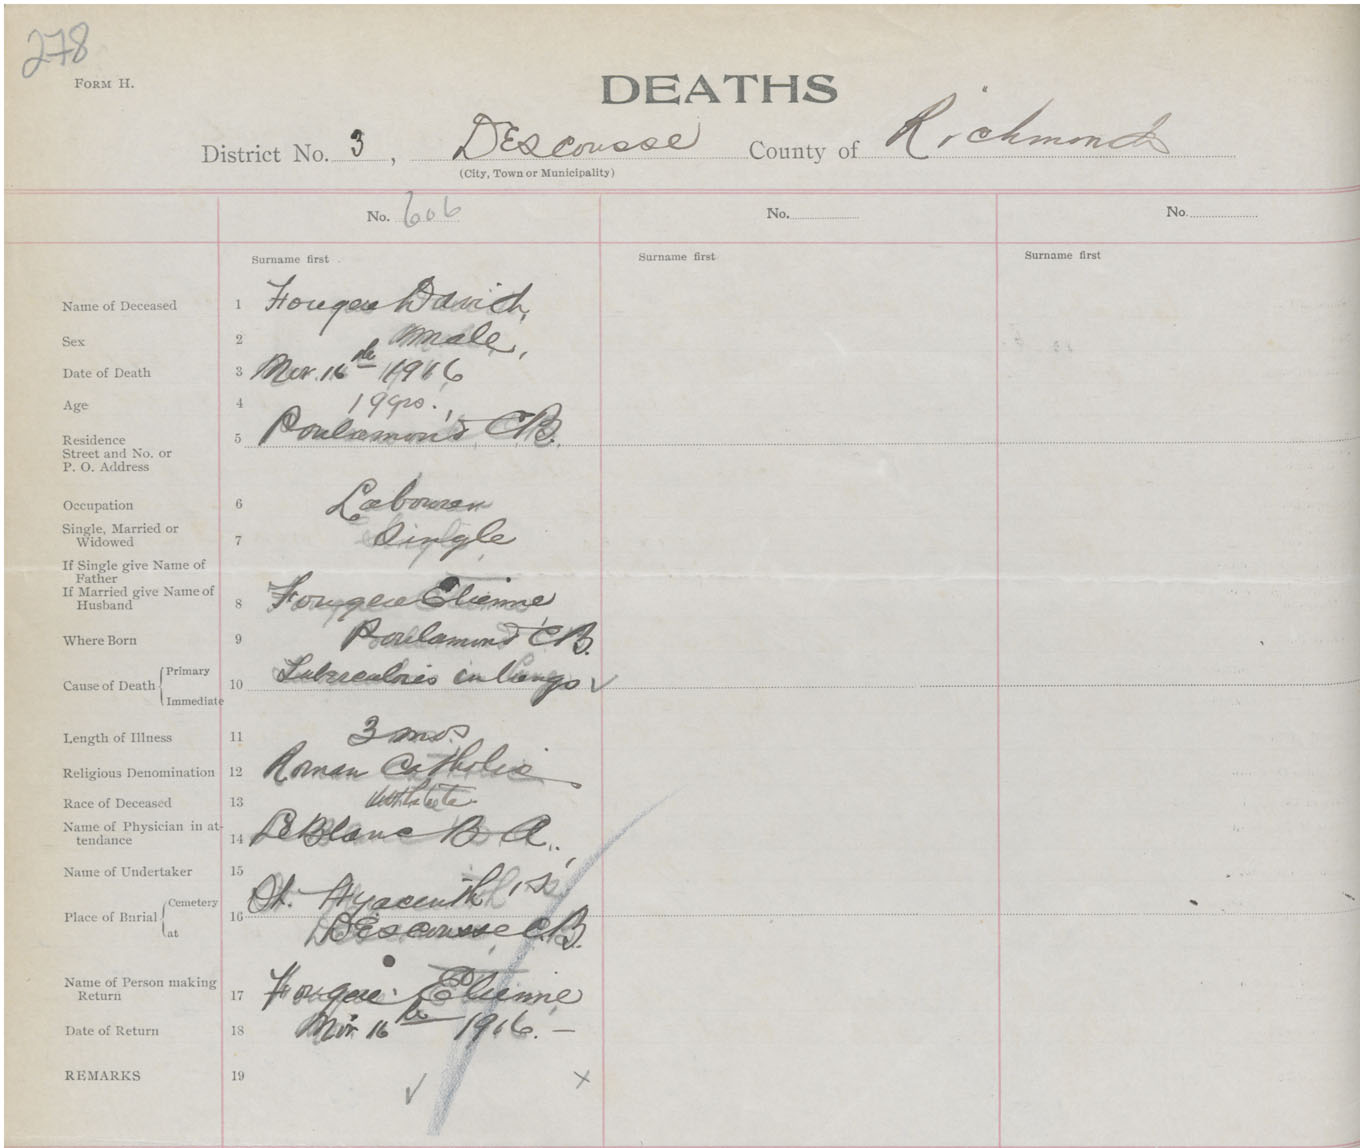 278
FORM H.
DEATHS
District No. 3, Descousse County of Richmond
(City, Town or Municipality)
No. 606 No. No.
Surname first Surname first Surname first
Name of Deceased 1 Fougere David,
Sex 2 Male,
Date of Death 3 Mar. 16th 1916
Age 4 19 yrs.,
Residence 5 Poulamond C.B.
Street and No. or
P. O. Address
Occupation 6 Labourer
Single, Married or
Widowed 7 Single
If Single give Name of
Father
If Married give Name of
Husband 8 Fougere Etienne
Where Born 9 Poulamond C.B.
Cause of Death Primary
Immediate 10 Tuberculosis in lungs ✓
Length of Illness 11 3 mos
Religious Denomination 12 Roman Catholic
Race of Deceased 13 White
Name of Physician in at-
tendance 14 LeBlanc B A.,
Name of Undertaker 15
Place of Burial Cemetery 16 St. Hyacinth's
at Descousse C.B.
Name of Person making
Return 17 Fougere Etienne
Date of Return 18 Mar 16th 1916. —
REMARKS 19
✓ x